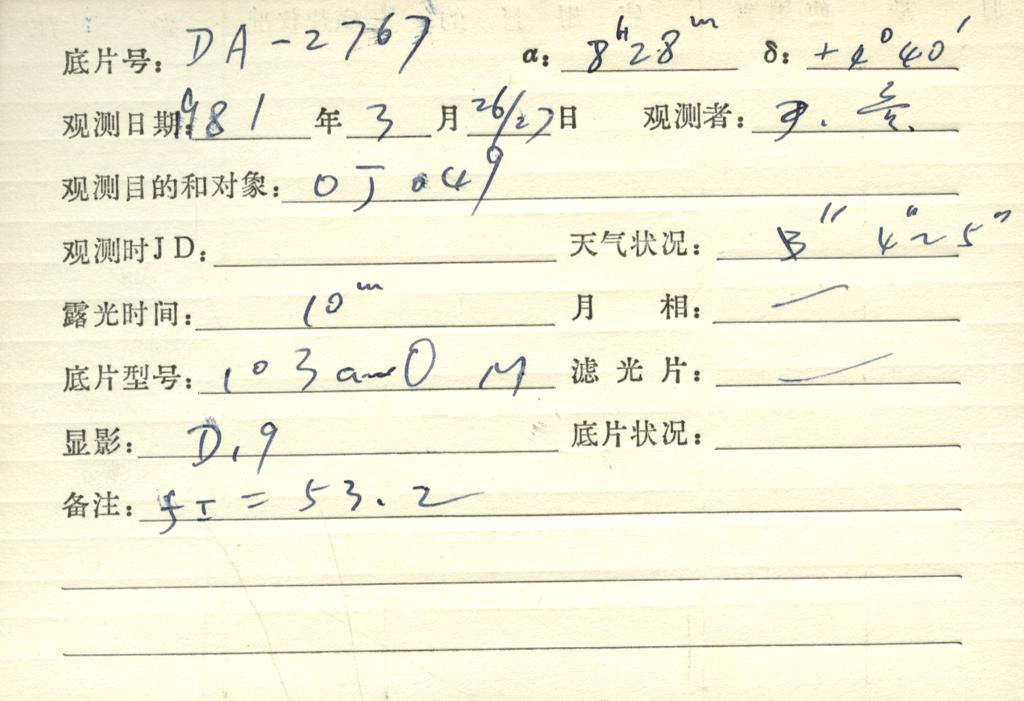 底片号: DA-2767 α: 8ʰ28ᵐ δ: +4°40′
观测日期: 1981 年 3 月 26/27 日 观测者:
观测目的和对象: OJ 049
观测时JD: 天气状况: 3″ 4″~5″
露光时间: 10ᵐ 月 相: —
底片型号: 103a-O 滤 光 片: —
显影: D.19 底片状况:
备注: fI = 53.2